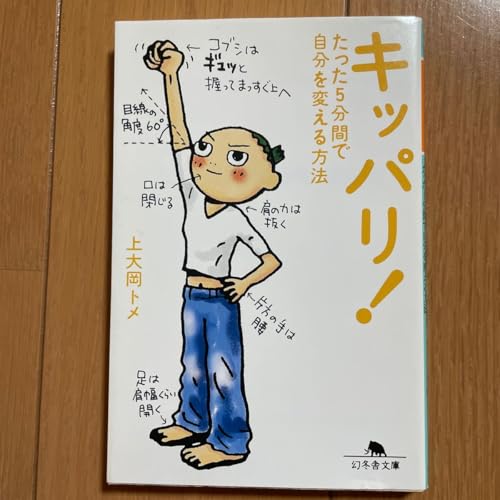 キッパリ!
たった5分間で
自分を変える方法
コブシは
ギュッと
握ってまっすぐ上へ
目線の
角度60°
口は
閉じる
肩の力は
抜く
上大岡トメ
片方の手は
腰
足は
肩幅くらい
開く
幻冬舎文庫